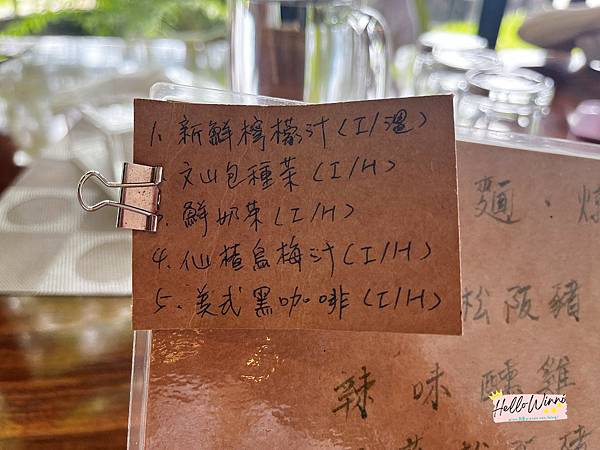 1. 新鮮檸檬汁(I/溫)
文山包種茶(I/H)
鮮奶茶(I/H)
4. 仙楂烏梅汁(I/H)
5. 美式黑咖啡(I/H)
麵.
松阪豬
辣味醺雞
松阪豬
Hello Winni